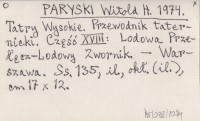 PARYSKI Witold H. 1974.
Tatry Wysokie. Przewodnik tater-
nicki. Część XVIII: Lodowa Prze-
łęcz-Lodowy Zwornik. — War-
szawa. Ss. 135, il., okł. (il.),
cm 17 x 12.